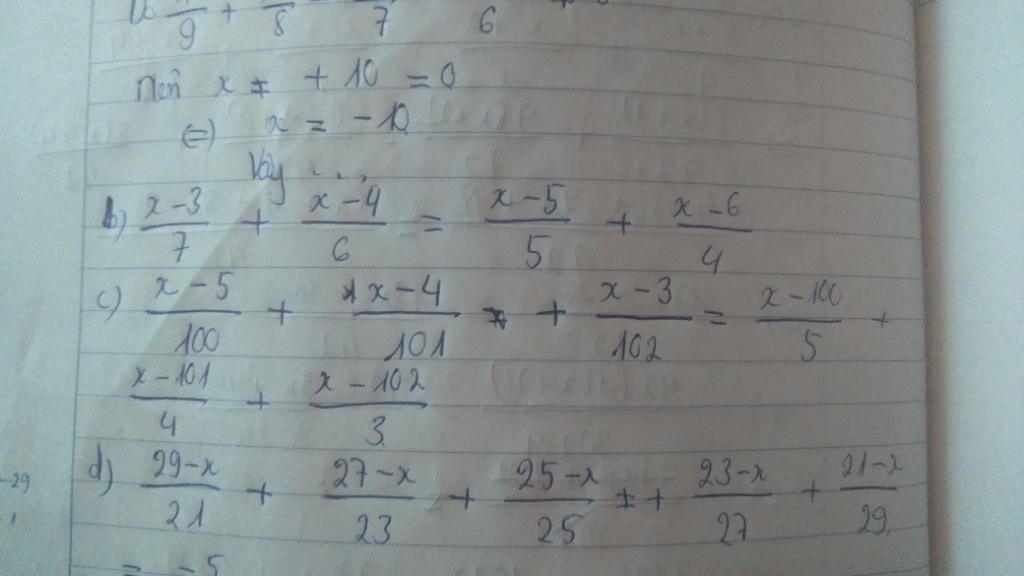 9 + 8 7 6
nên x = + 10 = 0
⇔ x = -10
Vậy ...
b) (x-3)/7 + (x-4)/6 = (x-5)/5 + (x-6)/4
c) (x-5)/100 + (x-4)/101 + (x-3)/102 = (x-100)/5 +
(x-101)/4 + (x-102)/3
d) (29-x)/21 + (27-x)/23 + (25-x)/25 + (23-x)/27 + (21-x)/29
= -5